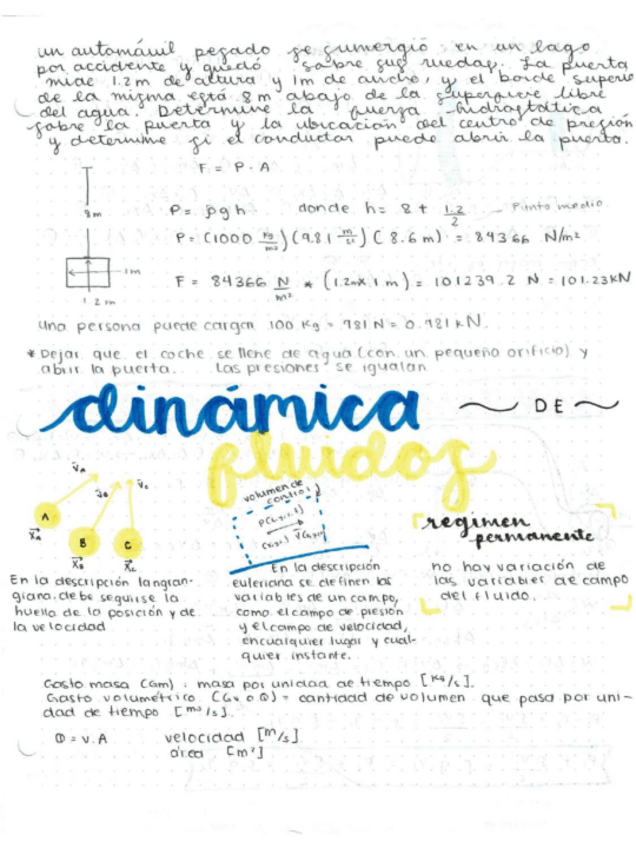 un automóvil pesado se sumergió en un lago
por accidente y quedó sobre sus ruedas. La puerta
mide 1.2 m de altura y 1m de ancho, y el borde superio
de la misma está 8 m abajo de la superficie libre
del agua. Determine la fuerza hidrostática
sobre la puerta y la ubicación del centro de presión
y determine si el conductor puede abrir la puerta.
F = P · A
8m
P = ρgh donde h = 8 + 1.2/2 Punto medio
P = (1000 kg/m³)(9.81 m/s²)(8.6 m) = 84366 N/m²
1m
F = 84366 N/m² * (1.2m x 1 m) = 101239.2 N = 101.23KN
1.2m
Una persona puede cargar 100 Kg = 981 N = 0.981 KN.
* Dejar que el coche se llene de agua (con un pequeño orificio) y
abrir la puerta... Las presiones se igualan
dinámica
DE
fluidos
V̄A
V̄B
V̄C
A
B
C
X̄A
X̄B
X̄C
volumen de
control
regimen
permanente
En la descripción langran-
giana, debe seguirse la
huella de la posición y de
la velocidad
En la descripción
euleriana se definen las
variables de un campo,
como el campo de presión
y el campo de velocidad,
en cualquier lugar y cual-
quier instante.
no hay variación de
las variables de campo
del fluido.
Gasto masa (Gm) : masa por unidad de tiempo [Kg/s].
Gasto volumétrico (Gv o Q) = cantidad de volumen que pasa por uni-
dad de tiempo [m³/s].
Q = v.A velocidad [m/s]
área [m²]